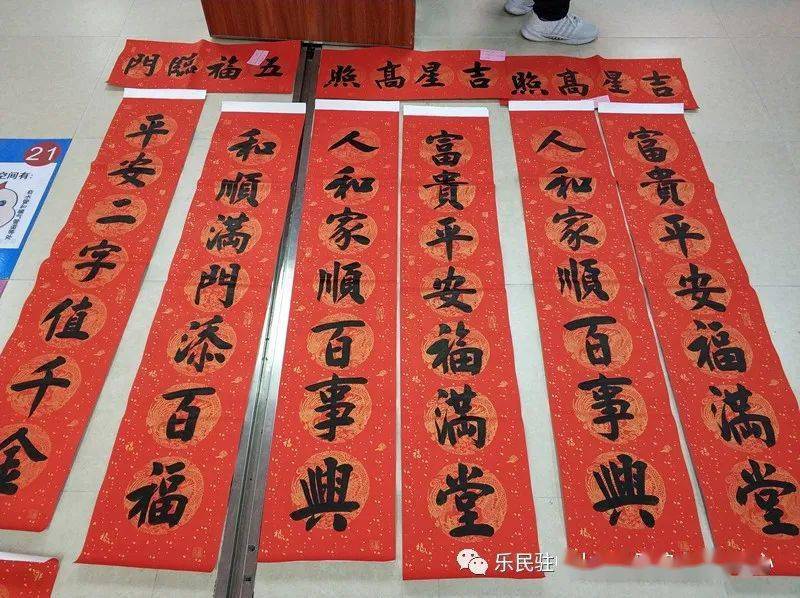 五福臨門
吉星高照
吉星高照
平安二字值千金
和順滿門添百福
人和家順百事興
富貴平安福滿堂
人和家順百事興
富貴平安福滿堂
21
空间有:
乐民驻